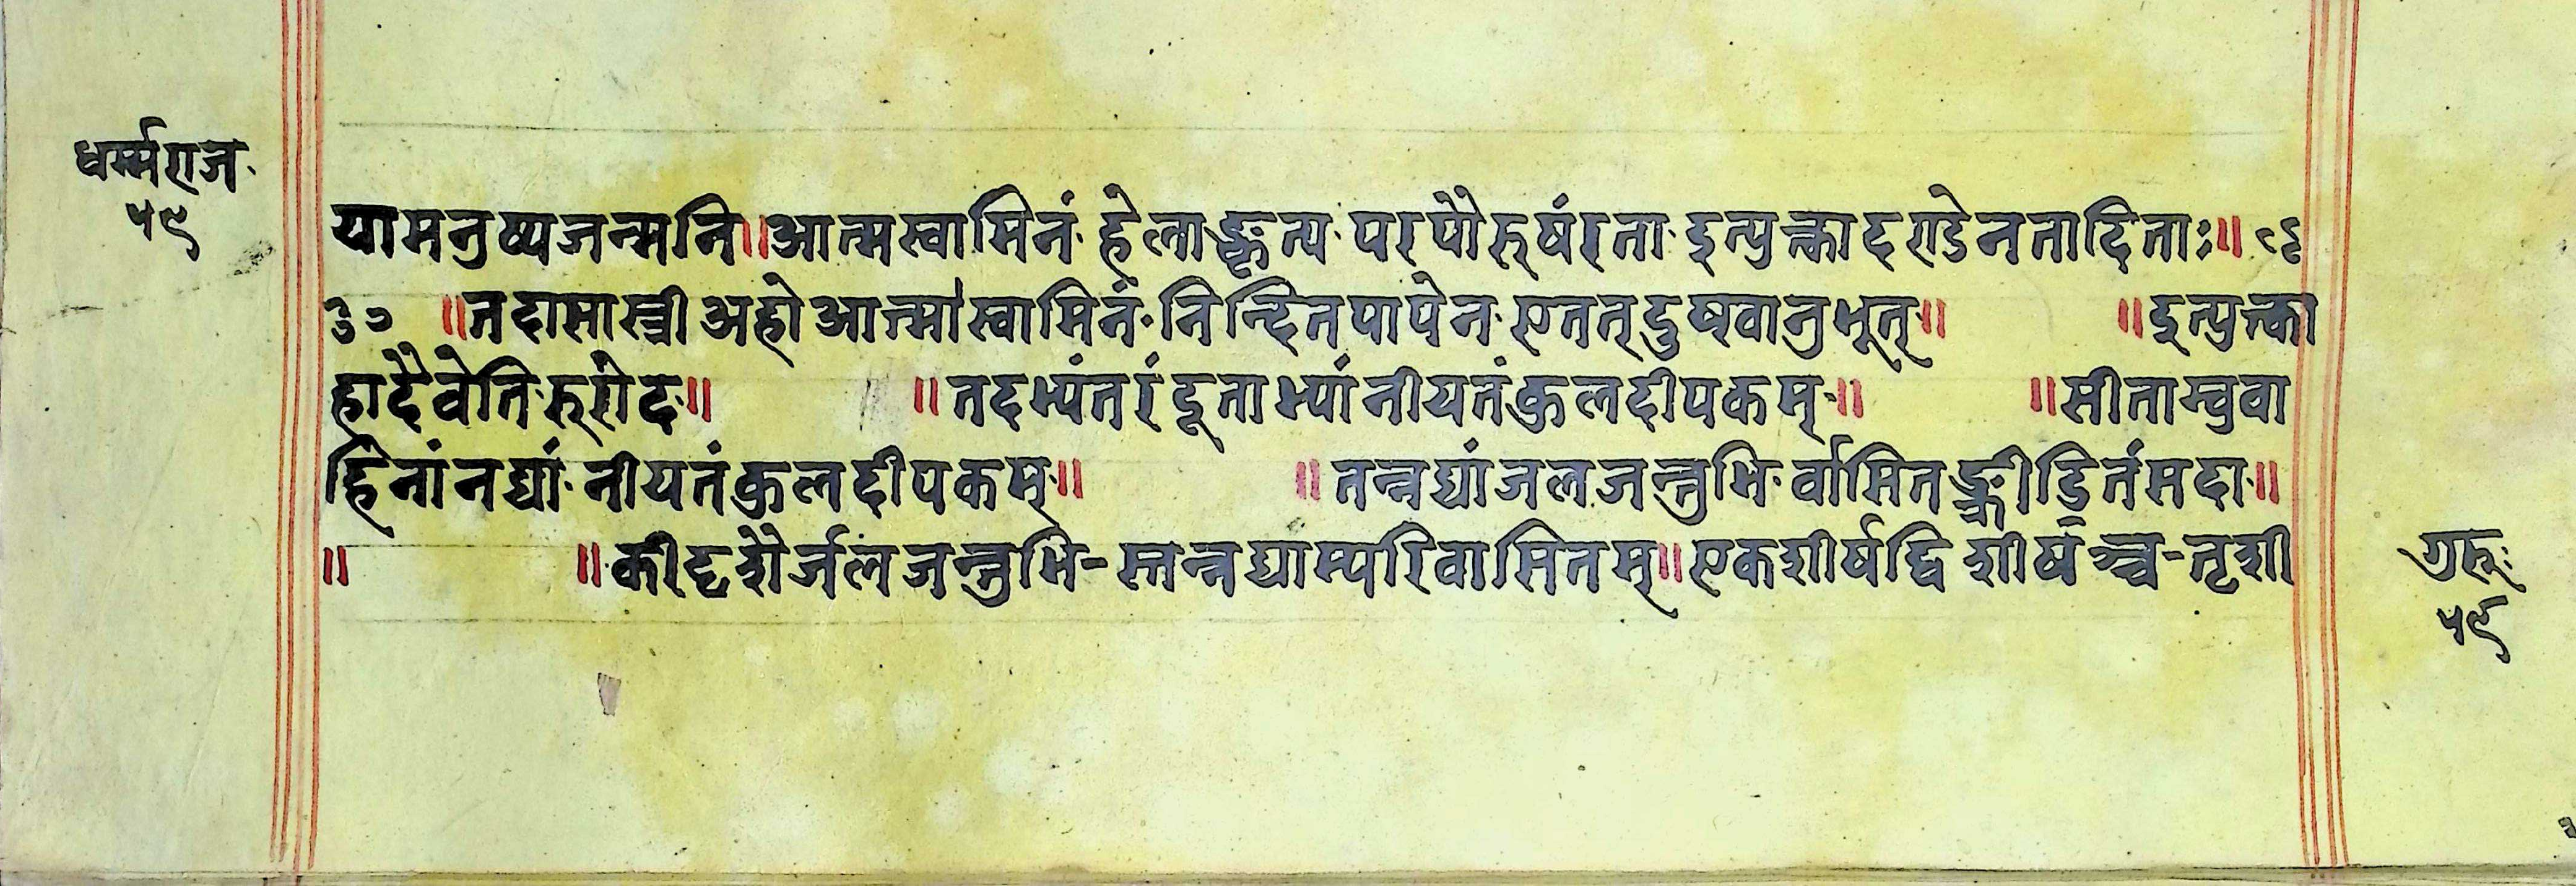 धर्म्मराज
५९
यामनुष्यजन्मनि॥आत्मस्वामिनं हेलाङ्कृत्य परपौरुषंरता इत्युक्त्वादण्डेनतादिताः॥
३० ॥तदासास्त्री अहो आत्मास्वामिनं निन्दितपापेन एतत्दुष्खानुभूत्॥ ॥इत्युक्त्वा
हादैवेति रुरोद॥ ॥तदभ्यंतरंदूताभ्यांनीयतंकुलदीपकम्॥ ॥सीताम्बुवा
हिनांनद्यां नीयतंकुलदीपकम्॥ ॥तन्नद्यांजलजन्तुभि र्वासितङ्क्रीडितंसदा॥
॥ ॥कीदृशैर्जलजन्तुभि-स्तन्नद्याम्परिवासितम्॥एकशीर्षद्विशीर्षञ्च-तृशी
गुरुः
५९